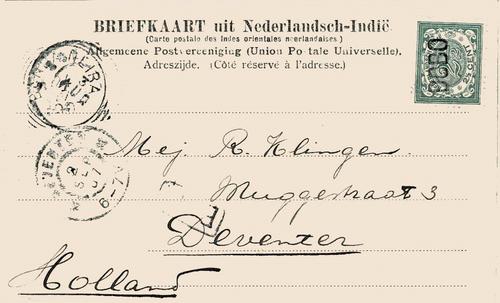 BRIEFKAART uit Nederlandsch-Indië.
(Carte postale des Indes orientales néerlandaises)
Algemeene Postvereeniging (Union Postale Universelle).
Adreszijde. (Côté réservé à l'adresse.)
Mej. R. Klingen.
Muggestraat 3
Deventer
Holland